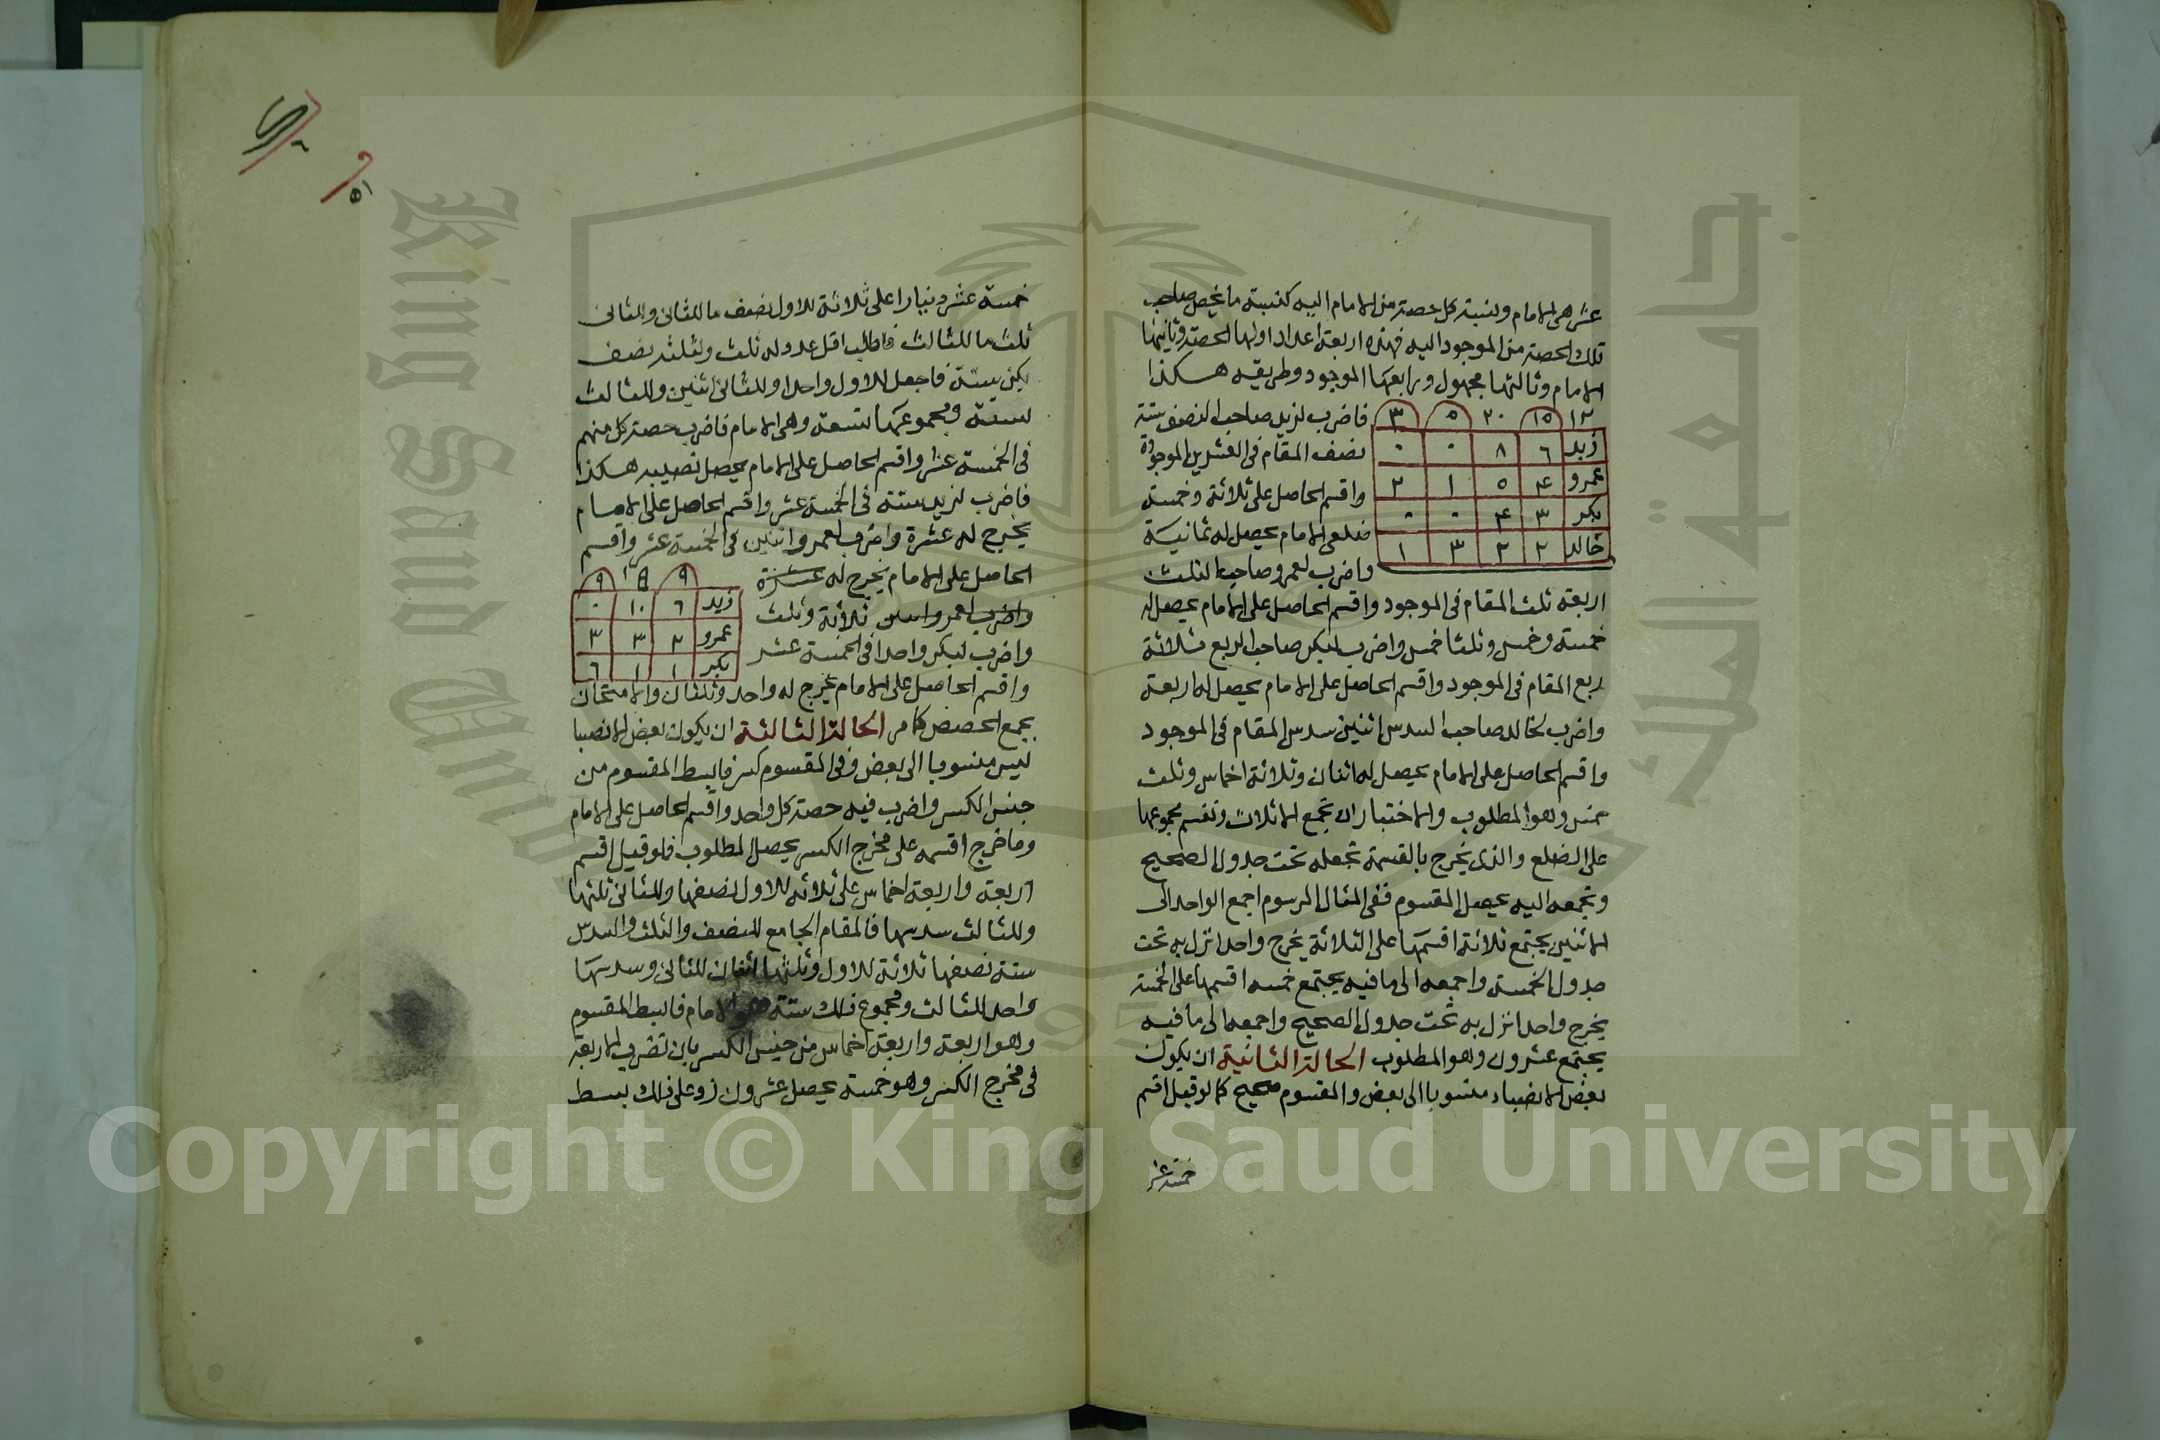 عشر هي الامام ونسبة كل حصة من الامام اليه كنسبة ما يخص صاحب
تلك الحصة من الموجود اليه فهذه اربعة اعداد اولها الحصة وثانيها
الامام وثالثها مجهول ورابعها الموجود وطريقه هكذا
١٢ ١٥ ٢٠ ٥ ٣
زيد ٦ ٨ ٠ ٠
عمرو ٤ ٥ ١ ٢
بكر ٣ ٤ ٠ ٠
خالد ٢ ٢ ٣ ١
فاضرب لزيد صاحب النصف ستة
نصف المقام في العشرين الموجودة
واقسم الحاصل على ثلاثة وخمسة
ضلعي الامام يحصل له ثمانية
واضرب لعمرو صاحب الثلث
اربعة ثلث المقام في الموجود واقسم الحاصل على الامام يحصل له
خمسة وخمس وثلثا خمس واضرب لبكر صاحب الربع ثلاثة
ربع المقام في الموجود واقسم الحاصل على الامام يحصل له اربعة
واضرب لخالد صاحب السدس اثنين سدس المقام في الموجود
واقسم الحاصل على الامام يحصل له اثنان وثلاثة اخماس وثلث
خمس وهو المطلوب والاختبار ان تجمع الاثلاث وتقسم مجموعها
على الضلع والذي يخرج بالقسمة تجعله تحت جدول الصحيح
وتجمعه اليه يحصل المقسوم ففي المثال المرسوم اجمع الواحد الى
الاثنين يجتمع ثلاثة اقسمها على الثلاثة يخرج واحد انزل به تحت
جدول الخمسة واجمعه الى ما فيه يجتمع خمسه اقسمها على الخمسة
يخرج واحد انزل به تحت جدول الصحيح واجمعه الى ما فيه
يجتمع عشرون وهو المطلوب الحالة الثانية ان يكون
بعض الانصباء منسوبا الى بعض والمقسوم صحيح كما لو قيل اقسم
خمسة عشر
خمسة عشر دينارا على ثلاثة للاول نصف ما للثاني وللثاني
ثلث ما للثالث فاطلب اقل عدد له ثلث ولثلثه نصف
يكن ستة فاجعل للاول واحدا وللثاني اثنين وللثالث
ستة ومجموعها تسعة وهي الامام فاضرب حصة كل منهم
في الخمسة عشر واقسم الحاصل على الامام يحصل نصيبه هكذا
فاضرب لزيد ستة في الخمسة عشر واقسم الحاصل على الامام
يخرج له عشرة واضرب لعمرو اثنين في الخمسة عشر واقسم
الحاصل على الامام يخرج له عشرة
واضرب لعمرو اثنين ثلاثة وثلث
واضرب لبكر واحدا في الخمسة عشر
٩ ١٥ ٩
زيد ٦ ١٠ ٠
عمرو ٢ ٣ ٣
بكر ١ ١ ٦
واقسم الحاصل على الامام يخرج له واحد وثلثان والامتحان
بجمع الحصص كما مر الحالة الثالثة ان يكون بعض الانصبا
ليس منسوبا الى بعض وفي المقسوم كسر فابسط المقسوم من
جنس الكسر واضرب فيه حصة كل واحد واقسم الحاصل على الامام
وما خرج اقسمه على مخرج الكسر يحصل المطلوب فلو قيل اقسم
اربعة واربعة اخماس على ثلاثه للاول نصفها وللثاني ثلثها
وللثالث سدسها فالمقام الجامع للنصف والثلث والسدس
ستة نصفها ثلاثة للاول وثلثها اثنان للثاني وسدسها
واحد للثالث ومجموع ذلك ستة هو الامام فابسط المقسوم
وهو اربعة واربعة اخماس من جنس الكسر بان تضرب الاربعة
في مخرج الكسر وهو خمسة يحصل عشرون زد على ذلك بسط
٥١
King Saud University
جامعة الملك
Copyright © King Saud University